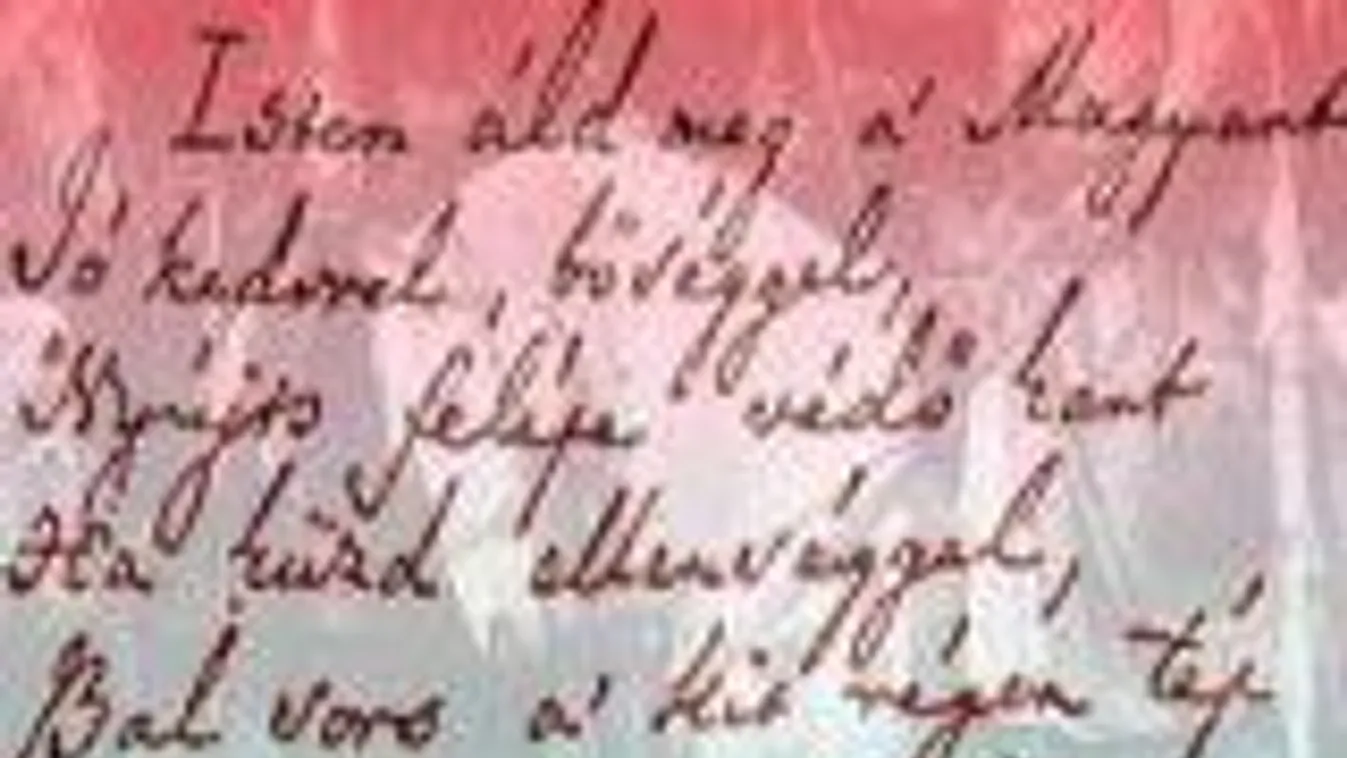 Isten áld meg a' Magyart
Jó kedvvel, bőséggel,
Nyújts feléje védő kart
Ha küzd ellenséggel,
Bal sors a' kit régen tép